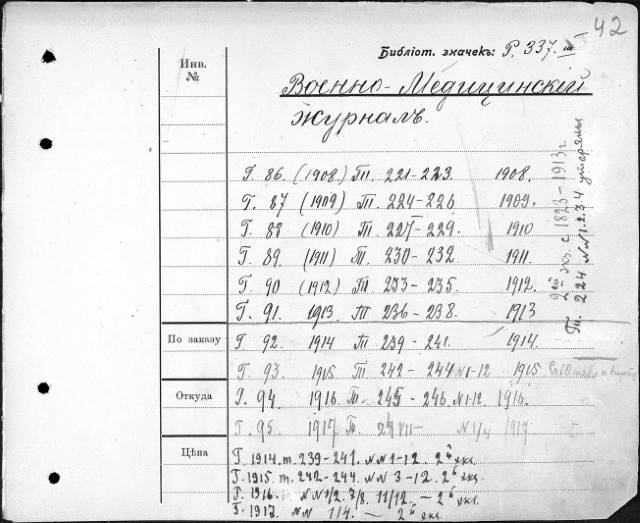 42
Библіот. значекъ: P. 337. III
Инв.
№
Военно-Медицинскій
журналъ.
Г. 86. (1908) Т. 221-223. 1908.
Г. 87 (1909) Т. 224-226 1909.
Г. 88 (1910) Т. 227-229. 1910
Г. 89. (1911) Т. 230-232 1911.
Г. 90 (1912) Т. 233-235 1912.
Г. 91. 1913 Т. 236-238. 1913
2ой экз. с 1823-1913 г
Т. 224 NN 1.2.3.4 утеряны
По заказу
Г. 92. 1914 Т. 239-241. 1914.
Г. 93. 1915 Т. 242-244 N 1-12 1915
Откуда
Г. 94. 1916. Т. 245-246 N 1-12. 1916.
Г. 95. 1917. Т. N 1/4 1917
Цѣна
Г. 1914. т. 239-241. NN 1-12. 2й экз.
Г. 1915 т. 242-244. NN 3-12. 2й экз.
Г. 1916. NN 1/2. 7/8. 11/12. - 2й экз.
Г. 1917. NN 1/4. - 2й экз.